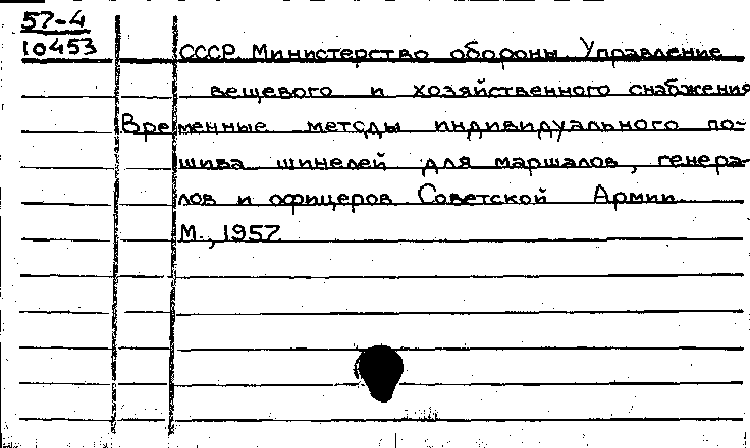 57-4
10453
СССР Министерство обороны Управление
вещевого и хозяйственного снабжения
Временные методы индивидуального по-
шива шинелей для маршалов, генера-
лов и офицеров Советской Армии
М., 1957